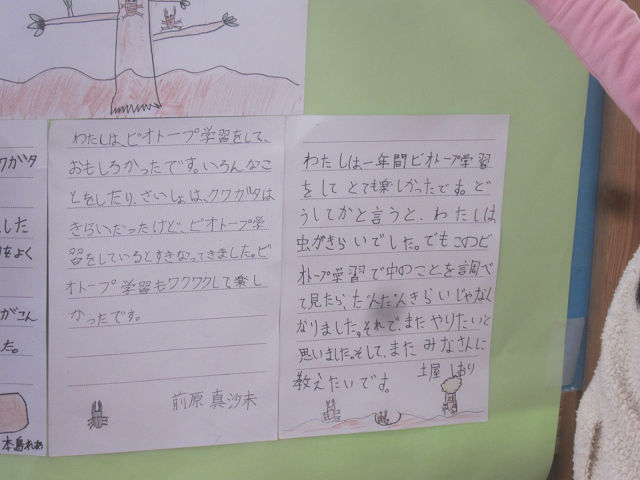 ワガタ
した
をよく
がこん
た。
本島れあ
わたしは、ビオトープ学習をして、
おもしろかったです。いろんなこ
とをしたり、さいしょは、クワガタは
きらいだったけど、ビオトープ学
習をしているとすきなってきました。ビ
オトープ学習もワクワクして楽し
かったです。
前原真沙未
わたしは一年間ビオトープ学習
をしてとても楽しかったです。ど
うしてかと言うと、わたしは
虫がきらいでした。でもこのつビ
オトープ学習で中のことを調べ
て見たら、だんだんきらいじゃなく
なりました。それで、またやりたいと
思いました。そして、またみなさんに
教えたいです。
土屋しおり